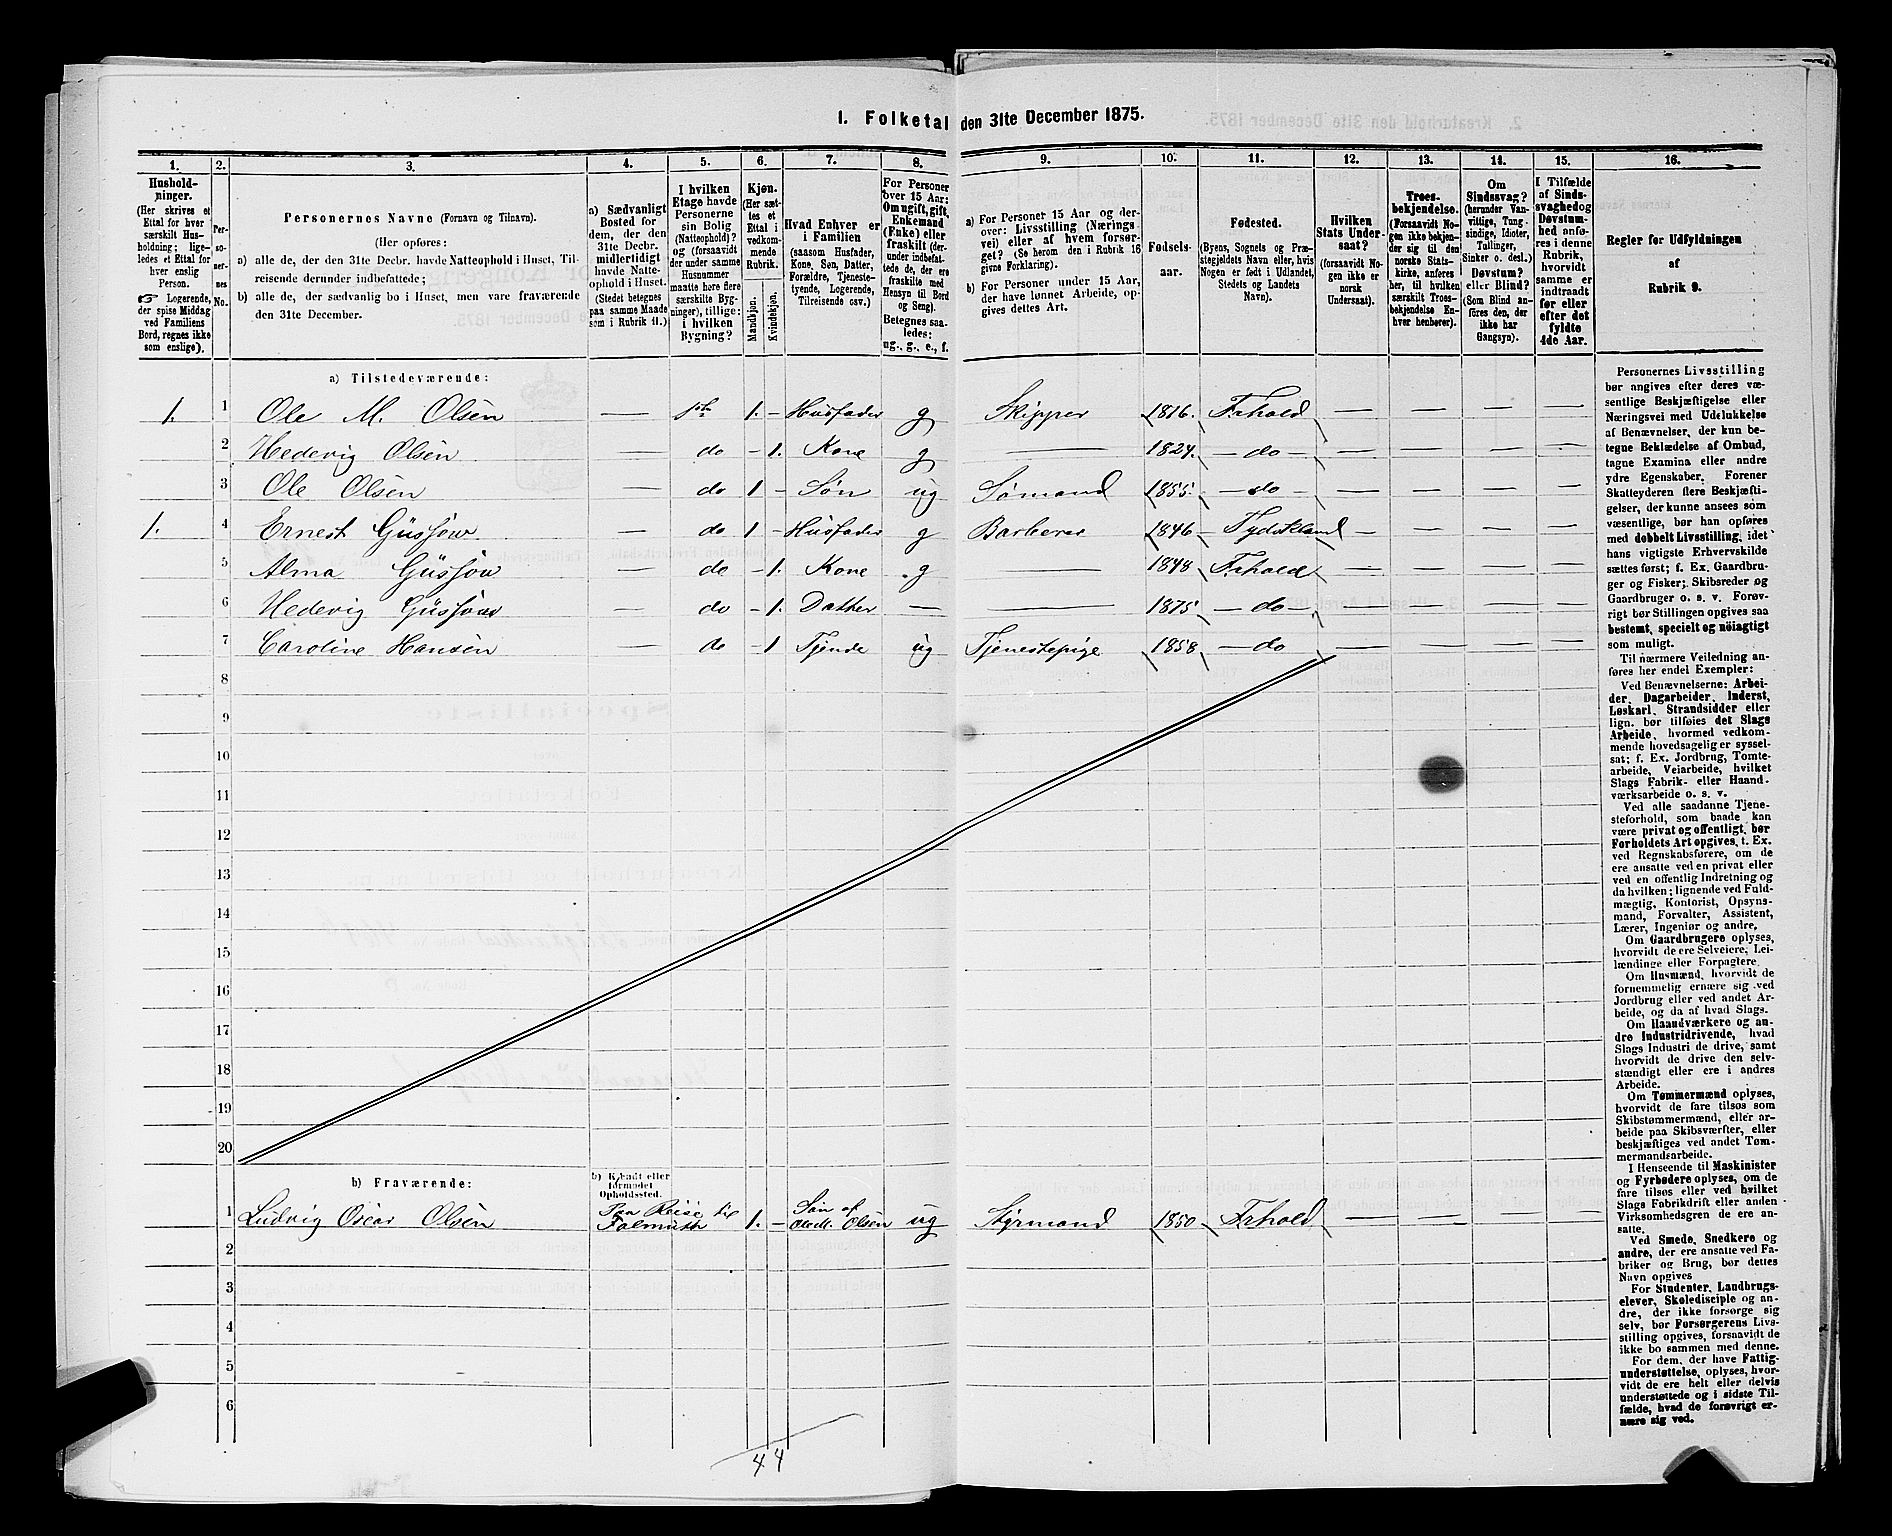 1. Folketal den 31te December 1875.
1. 2. 3. 4. 5. 6. 7. 8. 9. 10. 11. 12. 13. 14. 15. 16.
Hushold-
ninger.
(Her skrives et
Ettal for hver
særskilt Hus-
holdning; lige-
ledes et Ettal for
hver enslig
Person.
☞ Logerende,
der spise Middag
ved Familiens
Bord, regnes ikke
som enslige).
Per-
so-
ner-
nes
No.
Personernes Navne (Fornavn og Tilnavn).
(Her opføres:
a) alle de, der den 31te Decbr. havde Natteophold i Huset, Til-
reisende derunder indbefattede;
b) alle de, der sædvanlig bo i Huset, men vare fraværende
den 31te December.
a) Sædvanligt
Bosted for
dem, der den
31te Decbr.
midlertidigt
havde Natte-
ophold i Huset.
(Stedet betegnes
paa samme Maade
som i Rubrik 11.)
I hvilken
Etage havde
Personerne
sin Bolig
(Natteophold)?
og (forsaavidt
der under samme
Husnummer
maatte høre flere
særskilte Byg-
ninger), tillige:
i hvilken
Bygning?
Kjøn.
(Her sæt-
tes et
Ettal i
vedkom-
mende
Rubrik.
Mandkjøn.
Kvindekjøn.
Hvad Enhver er
i Familien
(saasom Husfader,
Kone, Søn, Datter,
Forældre, Tjeneste-
tyende, Logerende,
Tilreisende osv.)
For Personer
over 15 Aar:
Om ugift, gift,
Enkemand
(Enke) eller
fraskilt (der-
under indbefat-
tede de, der ere
fraskilte med
Hensyn til Bord
og Seng).
Betegnes saa-
ledes:
ug., g., e., f.
a) For Personer 15 Aar og der-
over: Livsstilling (Nærings-
vei) eller af hvem forsør-
get (Se herom den i Rubrik 16
givne Forklaring).
b) For Personer under 15 Aar,
der have lønnet Arbeide, op-
gives dettes Art.
Fødsels-
aar.
Fødested.
(Byens, Sognets og Præ-
stegjeldets Navn eller, hvis
Nogen er født i Udlandet,
Stedets og Landets
Navn).
Hvilken
Stats Under-
saat?
(forsaavidt No-
gen ikke er
norsk
Undersaat).
Troes-
bekjendelse.
(Forsaavidt No-
gen ikke bekjen-
der sig til den
norske Stats-
kirke, anføres
her, til hvilken
særskilt Troes-
bekjendelse En-
hver henhører).
Om
Sindssvag?
(herunder Van-
vittige, Tung-
sindige, Idioter,
Tullinger,
Sinker o. desl.)
Døvstum?
eller Blind?
(Som Blind an-
føres den, der
ikke har
Gangsyn).
I Tilfælde
af Sinds-
svaghed og
Døvstum-
hed anfø-
res i denne
Rubrik,
hvorvidt
samme er
indtraadt
før eller
efter det
fyldte
4de Aar.
Regler for Udfyldningen
af
Rubrik 9.
a) Tilstedeværende:
1. 1 Ole M. Olsen — 1ste 1. – Husfader g Skipper 1816. Frhald — — — —
2 Hedevig Olsen — do – 1. Kone g — 1824. – do – — — — —
3 Ole Olsen — do 1 – Søn ug Sømand 1855. – do – — — — —
1. 4 Ernest Güssow — do 1 – Husfader g Barberer 1846 – Tydskland — — — —
5 Alma Güssow — do – 1. Kone g — 1848 Frhald — — — —
6 Hedevig Güssow — do – 1. Datter — — 1875. – do – — — — —
7 Caroline Hansen — do – 1 Tjende ug Tjenestepige 1858 – do — — — —
8
9
10
11
12
13
14
15
16
17
18
19
20
b) Fraværende:
b) Kjendt eller
formodet
Opholdssted.
1 Ludvig Oscar Olsen Paa Reise til Falmuth 1. – Søn af Ole M. Olsen ug Styrmand 1850 Frhald — — — —
2
3
4
5
6
4 4
Personernes Livsstilling
bør angives efter deres væ-
sentlige Beskjæftigelse eller
Næringsvei med Udelukkelse
af Benævnelser, der kun be-
tegne Beklædelse af Ombud,
tagne Examina eller andre
ydre Egenskaber. Forener
Skatteyderen flere Beskjæfti-
gelser, der kunne ansees som
væsentlige, bør han opføres
med dobbelt Livsstilling, idet
hans vigtigste Erhvervskilde
sættes først; f. Ex. Gaardbru-
ger og Fisker; Skibsreder og
Gaardbruger o. s. v. Forøv-
rigt bør Stillingen opgives saa
bestemt, specielt og nöiagtigt
som muligt.
Til nærmere Veiledning an-
føres her endel Exempler:
Ved Benævnelserne: Arbei-
der, Dagarbeider, Inderst,
Løskarl, Strandsidder eller
lign. bør tilføies det Slags
Arbeide, hvormed vedkom-
mende hovedsagelig er syssel-
sat; f. Ex. Jordbrug, Tomte-
arbeide, Veiarbeide, hvilket
Slags Fabrik- eller Haand-
værksarbeide o. s. v.
Ved alle saadanne Tjene-
steforhold, som baade kan
være privat og offentligt, bør
Forholdets Art opgives, t. Ex.
ved Regnskabsførere, om de
ere ansatte ved en privat eller
ved en offentlig Indretning og
da hvilken; lignende ved Fuld-
mægtig, Kontorist, Opsyns-
mand, Forvalter, Assistent,
Lærer, Ingeniør og andre.
Om Gaardbrugere oplyses,
hvorvidt de ere Selveiere, Lei-
lændinge eller Forpagtere.
Om Husmænd, hvorvidt de
fornemmelig ernære sig ved
Jordbrug eller ved andet Ar-
beide, og da af hvad Slags.
Om Haandværkere og an-
dre Industridrivende, hvad
Slags Industri de drive, samt
hvorvidt de drive den selv-
stændigt eller ere i andres
Arbeide.
Om Tømmermænd oplyses,
hvorvidt de fare tilsøs som
Skibstømmermænd, eller ar-
beide paa Skibsværfter, eller
beskjæftiges ved andet Tøm-
mermandsarbeide.
I Henseende til Maskinister
og Fyrbødere oplyses, om de
fare tilsøs eller ved hvilket
Slags Fabrikdrift eller anden
Virksomhedsgren de ere an-
satte.
Ved Smede, Snedkere og
andre, der ere ansatte ved Fa-
briker og Brug, bør dettes
Navn opgives
For Studenter, Landbrugs-
elever, Skoledisciple og an-
dre, der ikke forsørge sig
selv, bør Forsørgerens Livs-
stilling opgives, forsaavidt de
ikke bo sammen med denne.
For dem, der have Fattig-
understøttelse, oplyses, hvor-
vidt de ere helt eller delvis
understøttede og i sidste Til-
fælde, hvad de forøvrigt er-
nære sig ved.